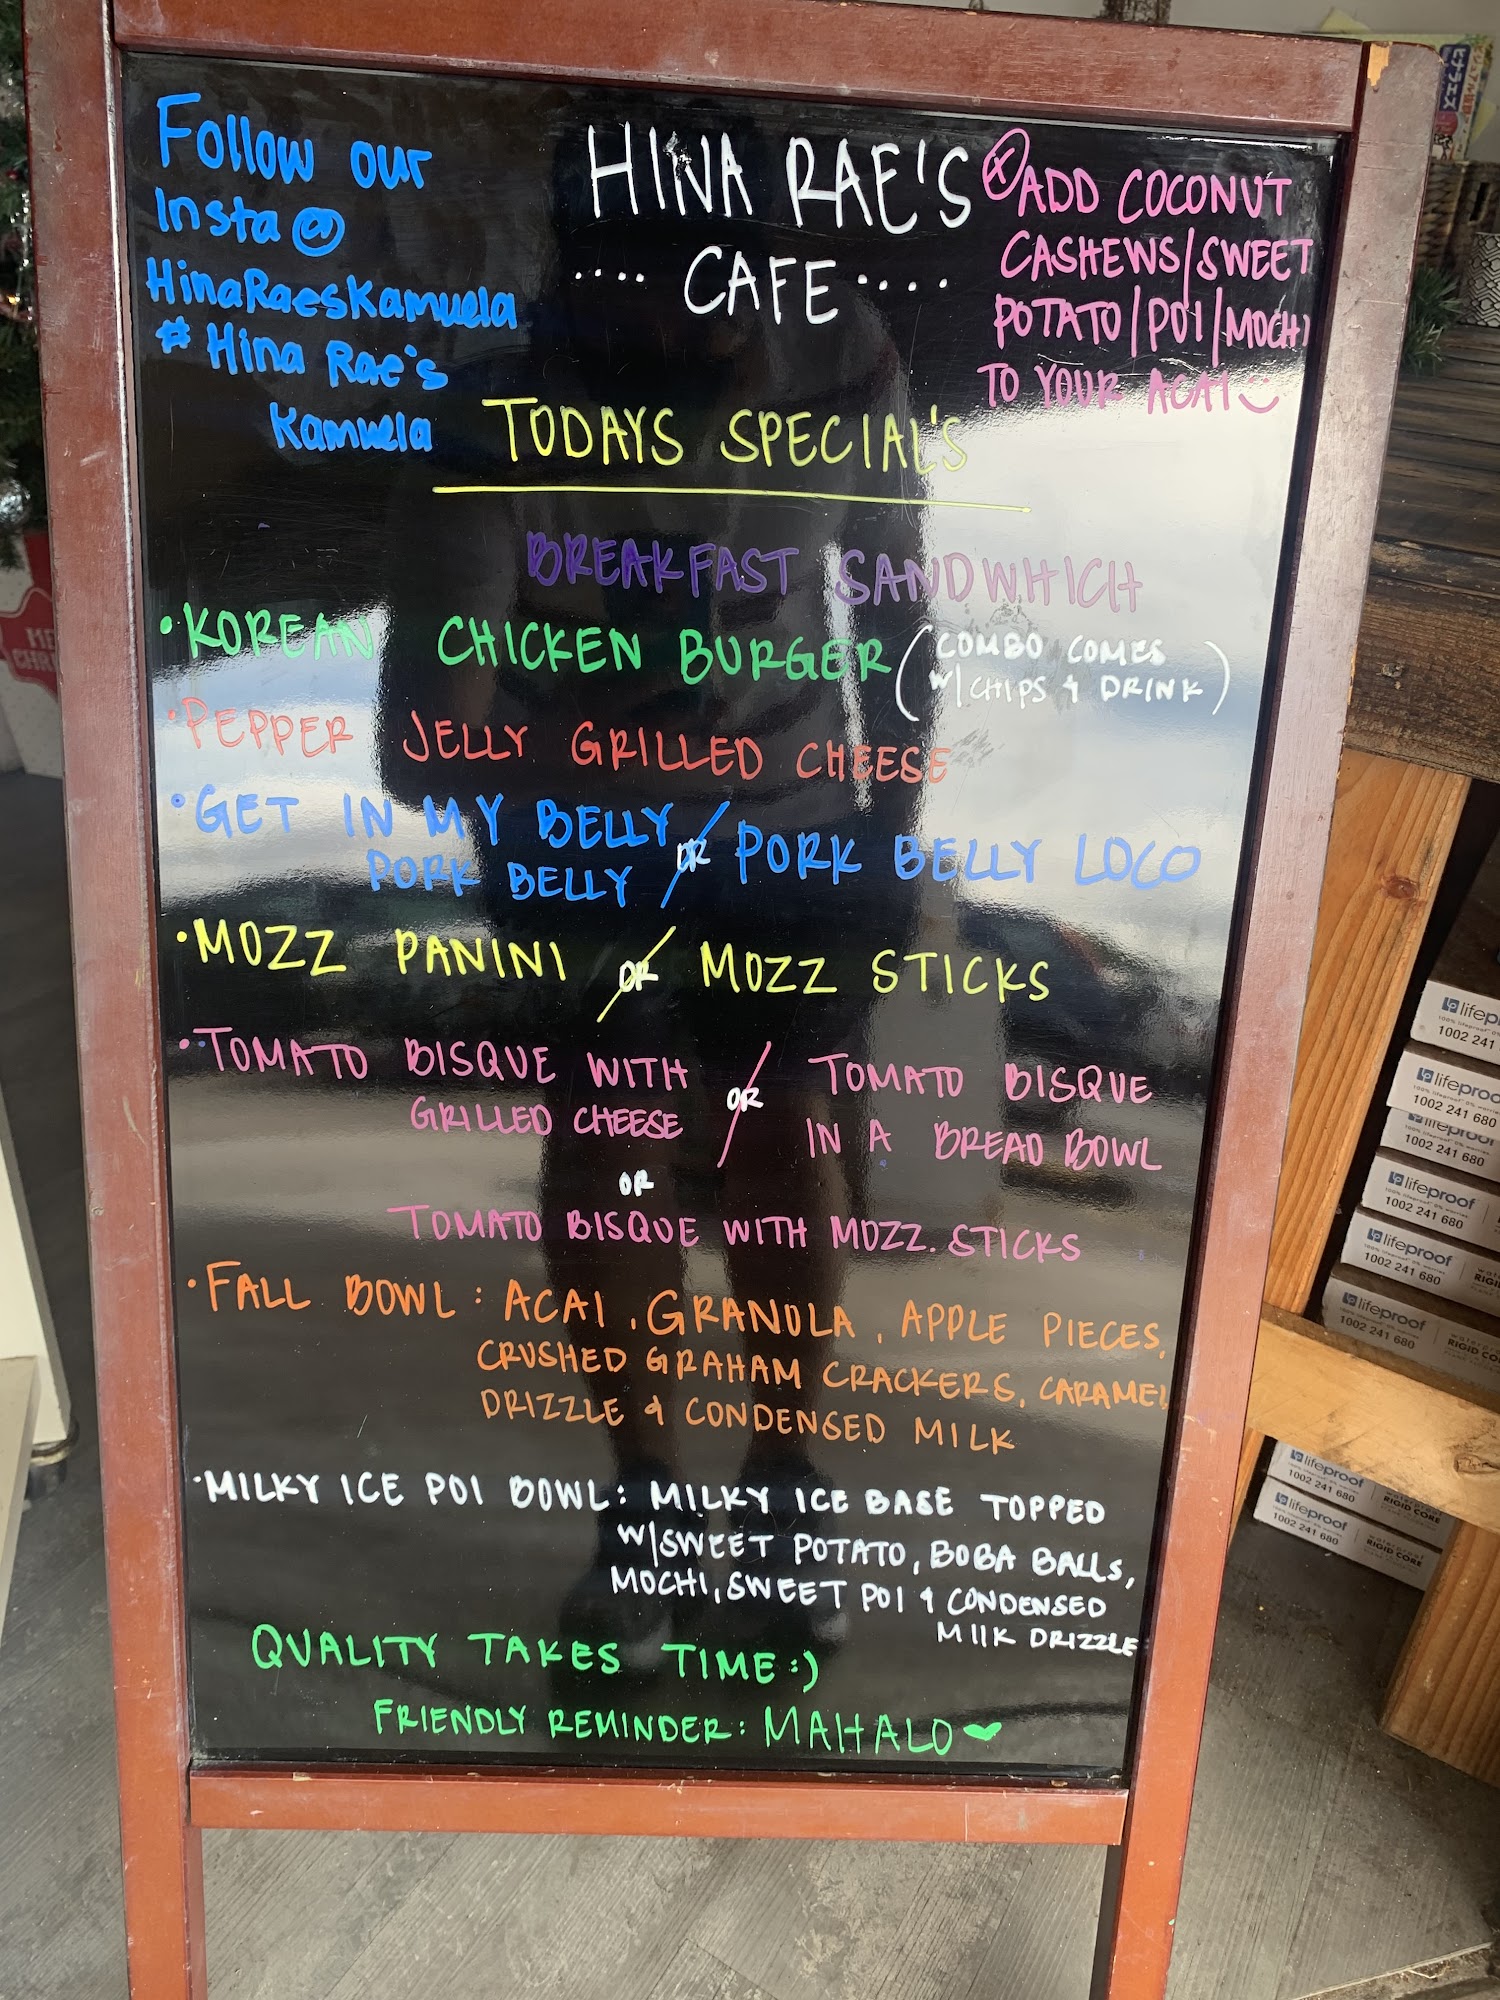 Follow our
Insta @
HinaRaesKamuela
# Hina Rae's
Kamuela
HINA RAE'S
.... CAFE ....
ADD COCONUT
CASHEWS/SWEET
POTATO/POI/MOCHI
TO YOUR ACAI
TODAYS SPECIAL'S
BREAKFAST SANDWHICH
• KOREAN CHICKEN BURGER (COMBO COMES
W/CHIPS & DRINK)
• PEPPER JELLY GRILLED CHEESE
• GET IN MY BELLY
PORK BELLY / OR PORK BELLY LOCO
• MOZZ PANINI / OR MOZZ STICKS
• TOMATO BISQUE WITH
GRILLED CHEESE / OR
TOMATO BISQUE
IN A BREAD BOWL
OR
TOMATO BISQUE WITH MOZZ. STICKS
• FALL BOWL: ACAI, GRANOLA, APPLE PIECES,
CRUSHED GRAHAM CRACKERS, CARAMEL
DRIZZLE & CONDENSED MILK
• MILKY ICE POI BOWL: MILKY ICE BASE TOPPED
W/SWEET POTATO, BOBA BALLS,
MOCHI, SWEET POI & CONDENSED
MIlK DRIZZLE
QUALITY TAKES TIME :)
FRIENDLY REMINDER: MAHALO
lifep
1002 241
lifeproo
1002 241 680
lifeproof
1002 241 680
lifeproof
1002 241 680
lifeproof
1002 241 680
RIGID
lifeproof
1002 241 680
RIGID CO
lifeproof
1002 241 680
RIGID CORE
lifeproof
1002 241 680
RIGID CORE